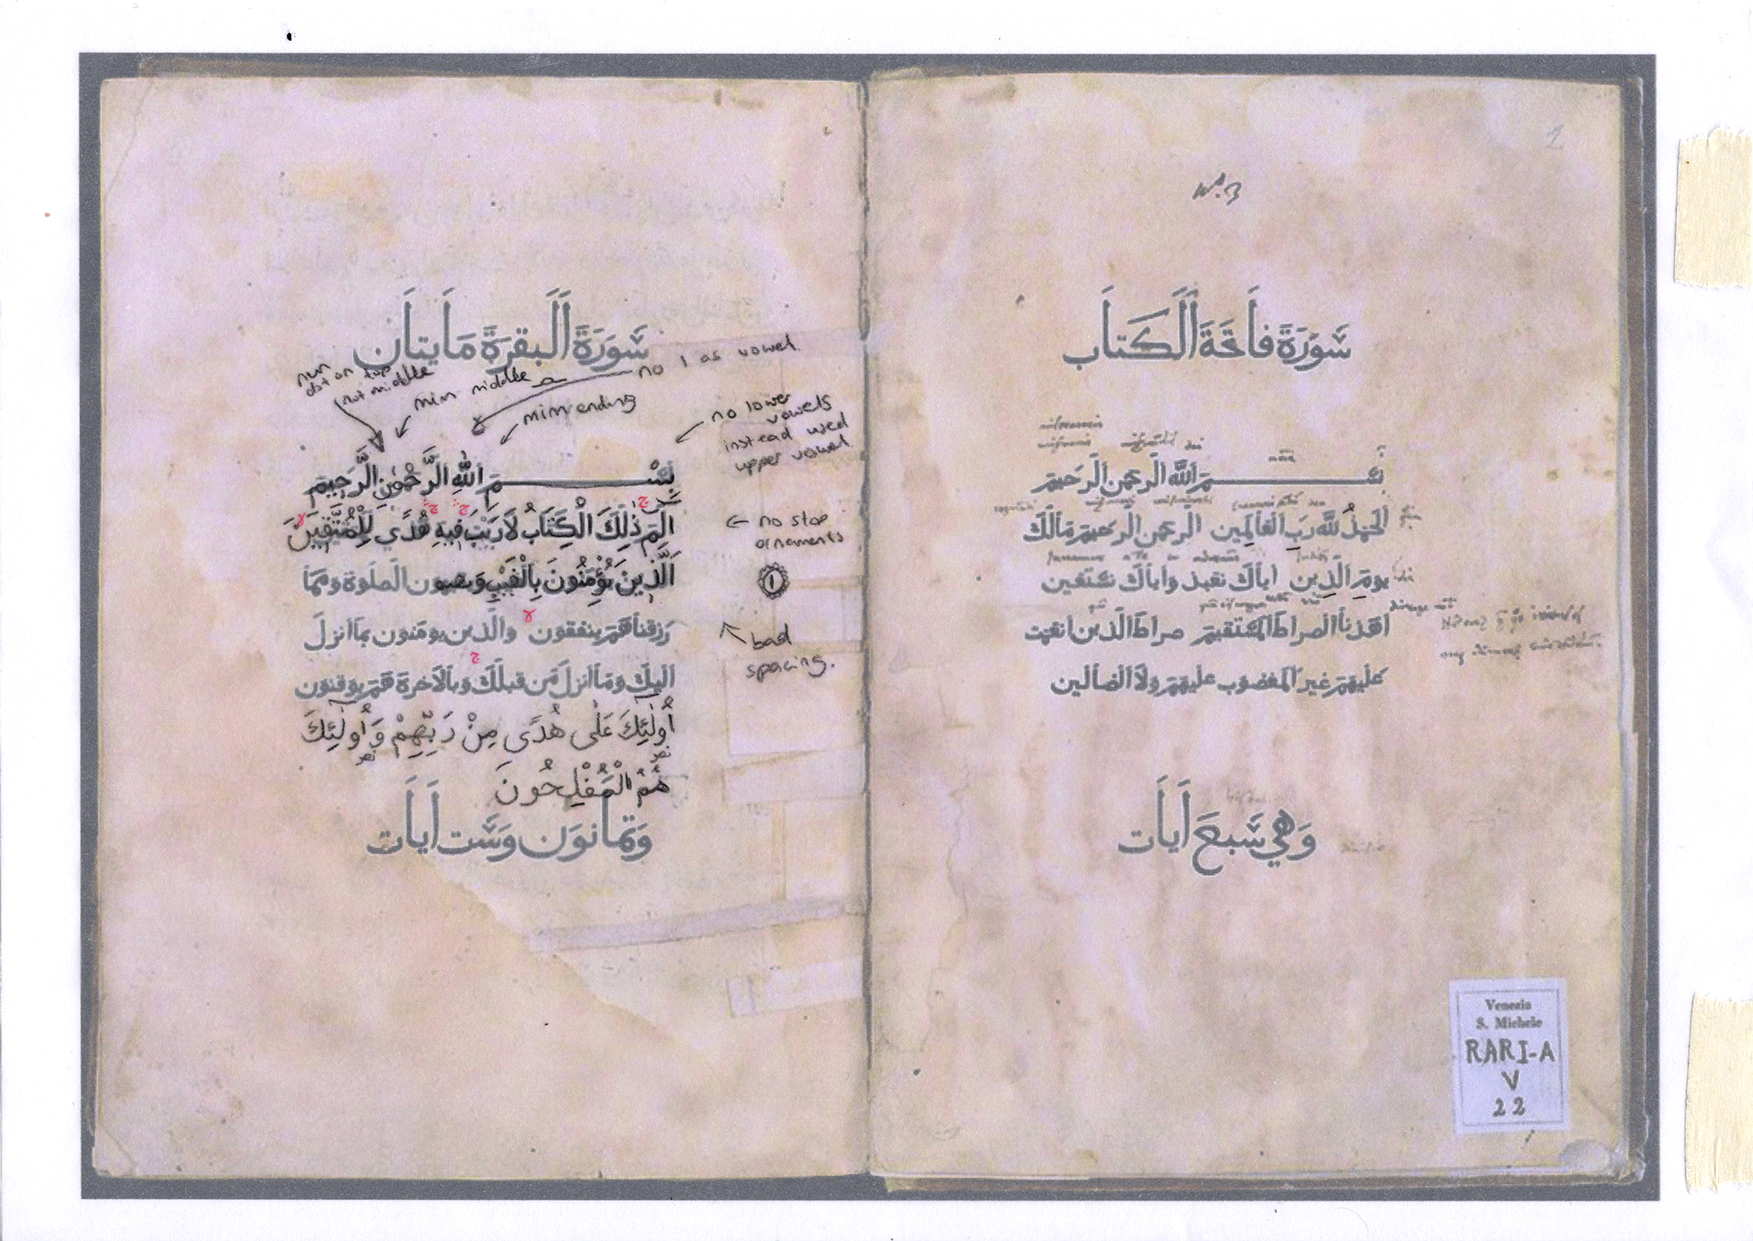 2
No. 3
سُورَةُ فَاتِحَةِ الْكِتَابِ
بســـــم الله الرحمن الرحيم
الحمد لله رب العالمين الرحمن الرحيم مالك
يوم الدين اياك نعبد واياك نستعين
اهدنا الصراط المستقيم صراط الذين انعمت
عليهم غير المغضوب عليهم ولا الضالين
وَهِي سَبعَ اَيَات
Venezia
S. Michele
RARI-A
V
22
سُورَةَ اَلبقرَةَ مَايتان
nun
dot on top
not middle
mim middle
no ا as vowel.
mim ending
no lower
vowels
instead used
upper vowel.
بِسْـــــمِ اللّٰهِ الرَّحْمٰنِ الرَّحِيمِ
الٓمٓ ذٰلِكَ الْكِتَابُ لَا رَيْبَ فِيهِ هُدًى لِلْمُتَّقِينَ
← no stop
ornaments
الَّذِينَ يُؤْمِنُونَ بِالْغَيْبِ وَيقيمون الصلوة ومما
١
رزقناهم ينفقون والذين يومنون بما انزل
bad
spacing.
اليك وما انزل من قبلك وبالاخرة هم يوقنون
أُولٰٓئِكَ عَلٰى هُدًى مِنْ رَبِّهِمْ وَأُولٰٓئِكَ
هُمُ الْمُفْلِحُونَ
وَثمانوَن وَسَت اَيَات